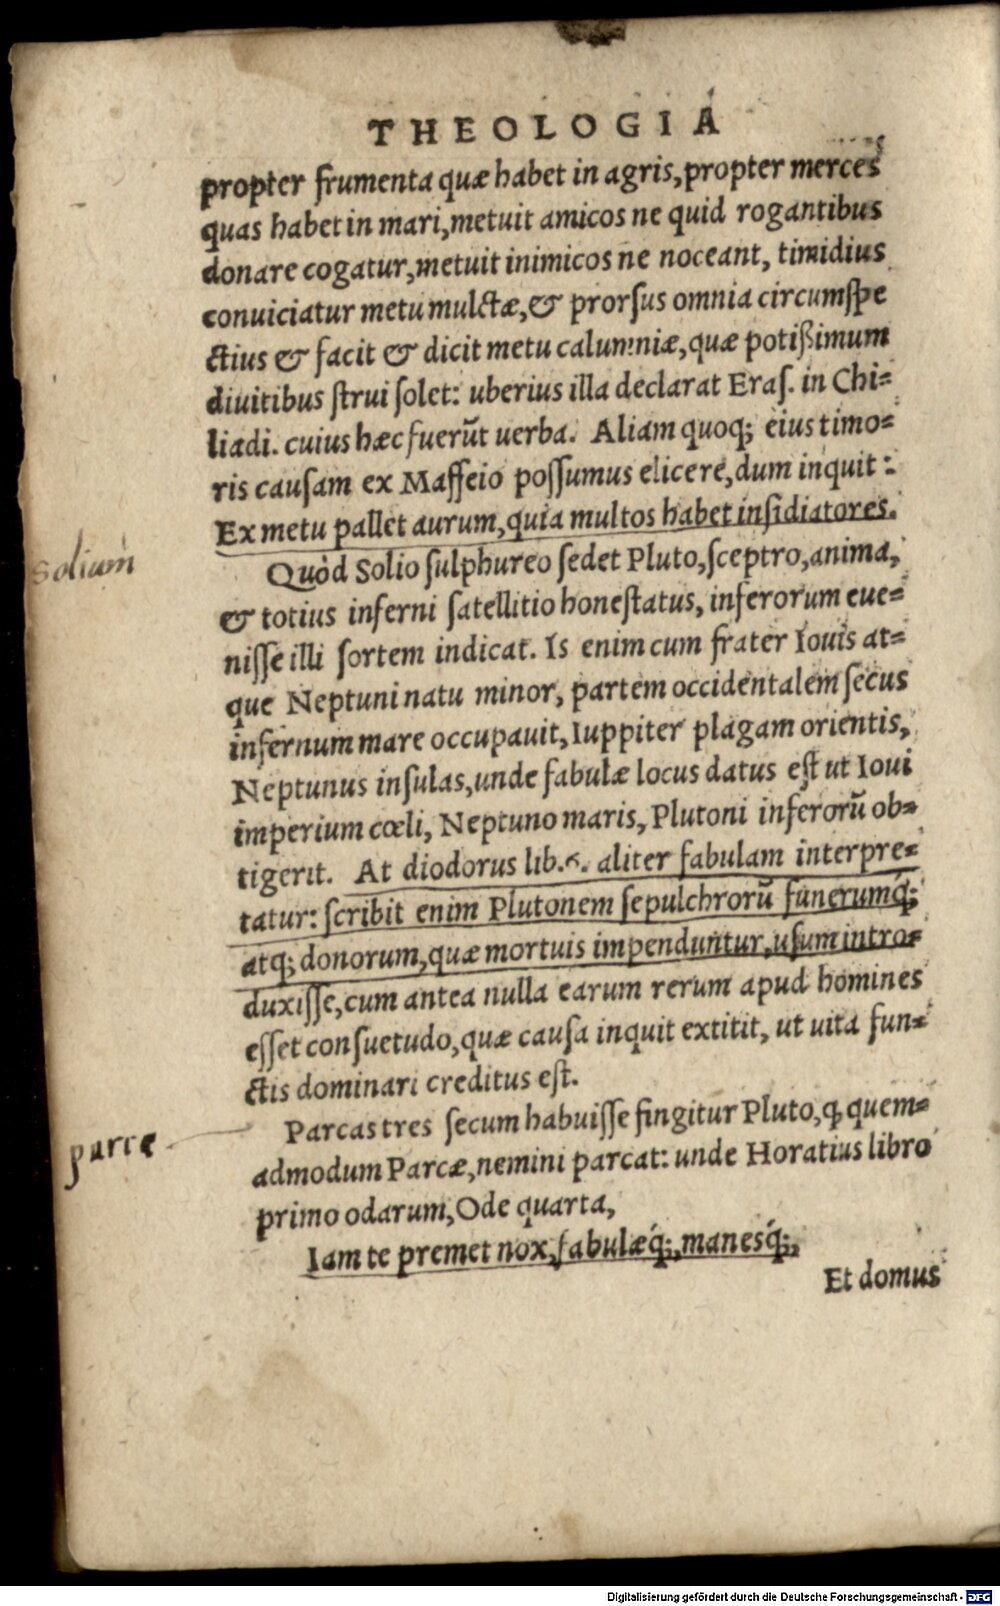 THEOLOGIA
propter frumenta quæ habet in agris, propter merces
quas habet in mari, metuit amicos ne quid rogantibus
donare cogatur, metuit inimicos ne noceant, timidius
conuiciatur metu mulctæ, & prorſus omnia circumſpe
ctius & facit & dicit metu calumniæ, quæ potißimum
diuitibus ſtrui ſolet: uberius illa declarat Eraſ. in Chi=
liadi. cuius hæc fuerūt uerba. Aliam quoq; eius timo=
ris cauſam ex Maffeio poſſumus elicere, dum inquit:
Ex metu pallet aurum, quia multos habet inſidiatores.
Solium
Quòd Solio ſulphureo ſedet Pluto, ſceptro, anima,
& totius inferni ſatellitio honeſtatus, inferorum eue=
niſſe illi ſortem indicat. Is enim cum frater Iouis at=
que Neptuni natu minor, partem occidentalem ſecus
infernum mare occupauit, Iuppiter plagam orientis,
Neptunus inſulas, unde fabulæ locus datus eſt ut Ioui
imperium cœli, Neptuno maris, Plutoni inferorū ob=
tigerit. At diodorus lib. 6. aliter fabulam interpre=
tatur: ſcribit enim Plutonem ſepulchrorū funerumq́;
atq; donorum, quæ mortuis impenduntur, uſum intro=
duxiſſe, cum antea nulla earum rerum apud homines
eſſet conſuetudo, quæ cauſa inquit extitit, ut uita fun=
ctis dominari creditus eſt.
parce
Parcas tres ſecum habuiſſe fingitur Pluto, ꝙ quem=
admodum Parcæ, nemini parcat: unde Horatius libro
primo odarum, Ode quarta,
Iam te premet nox, fabulæq́;, manesq́;,
Et domus
Digitalisierung gefördert durch die Deutsche Forschungsgemeinschaft - DFG